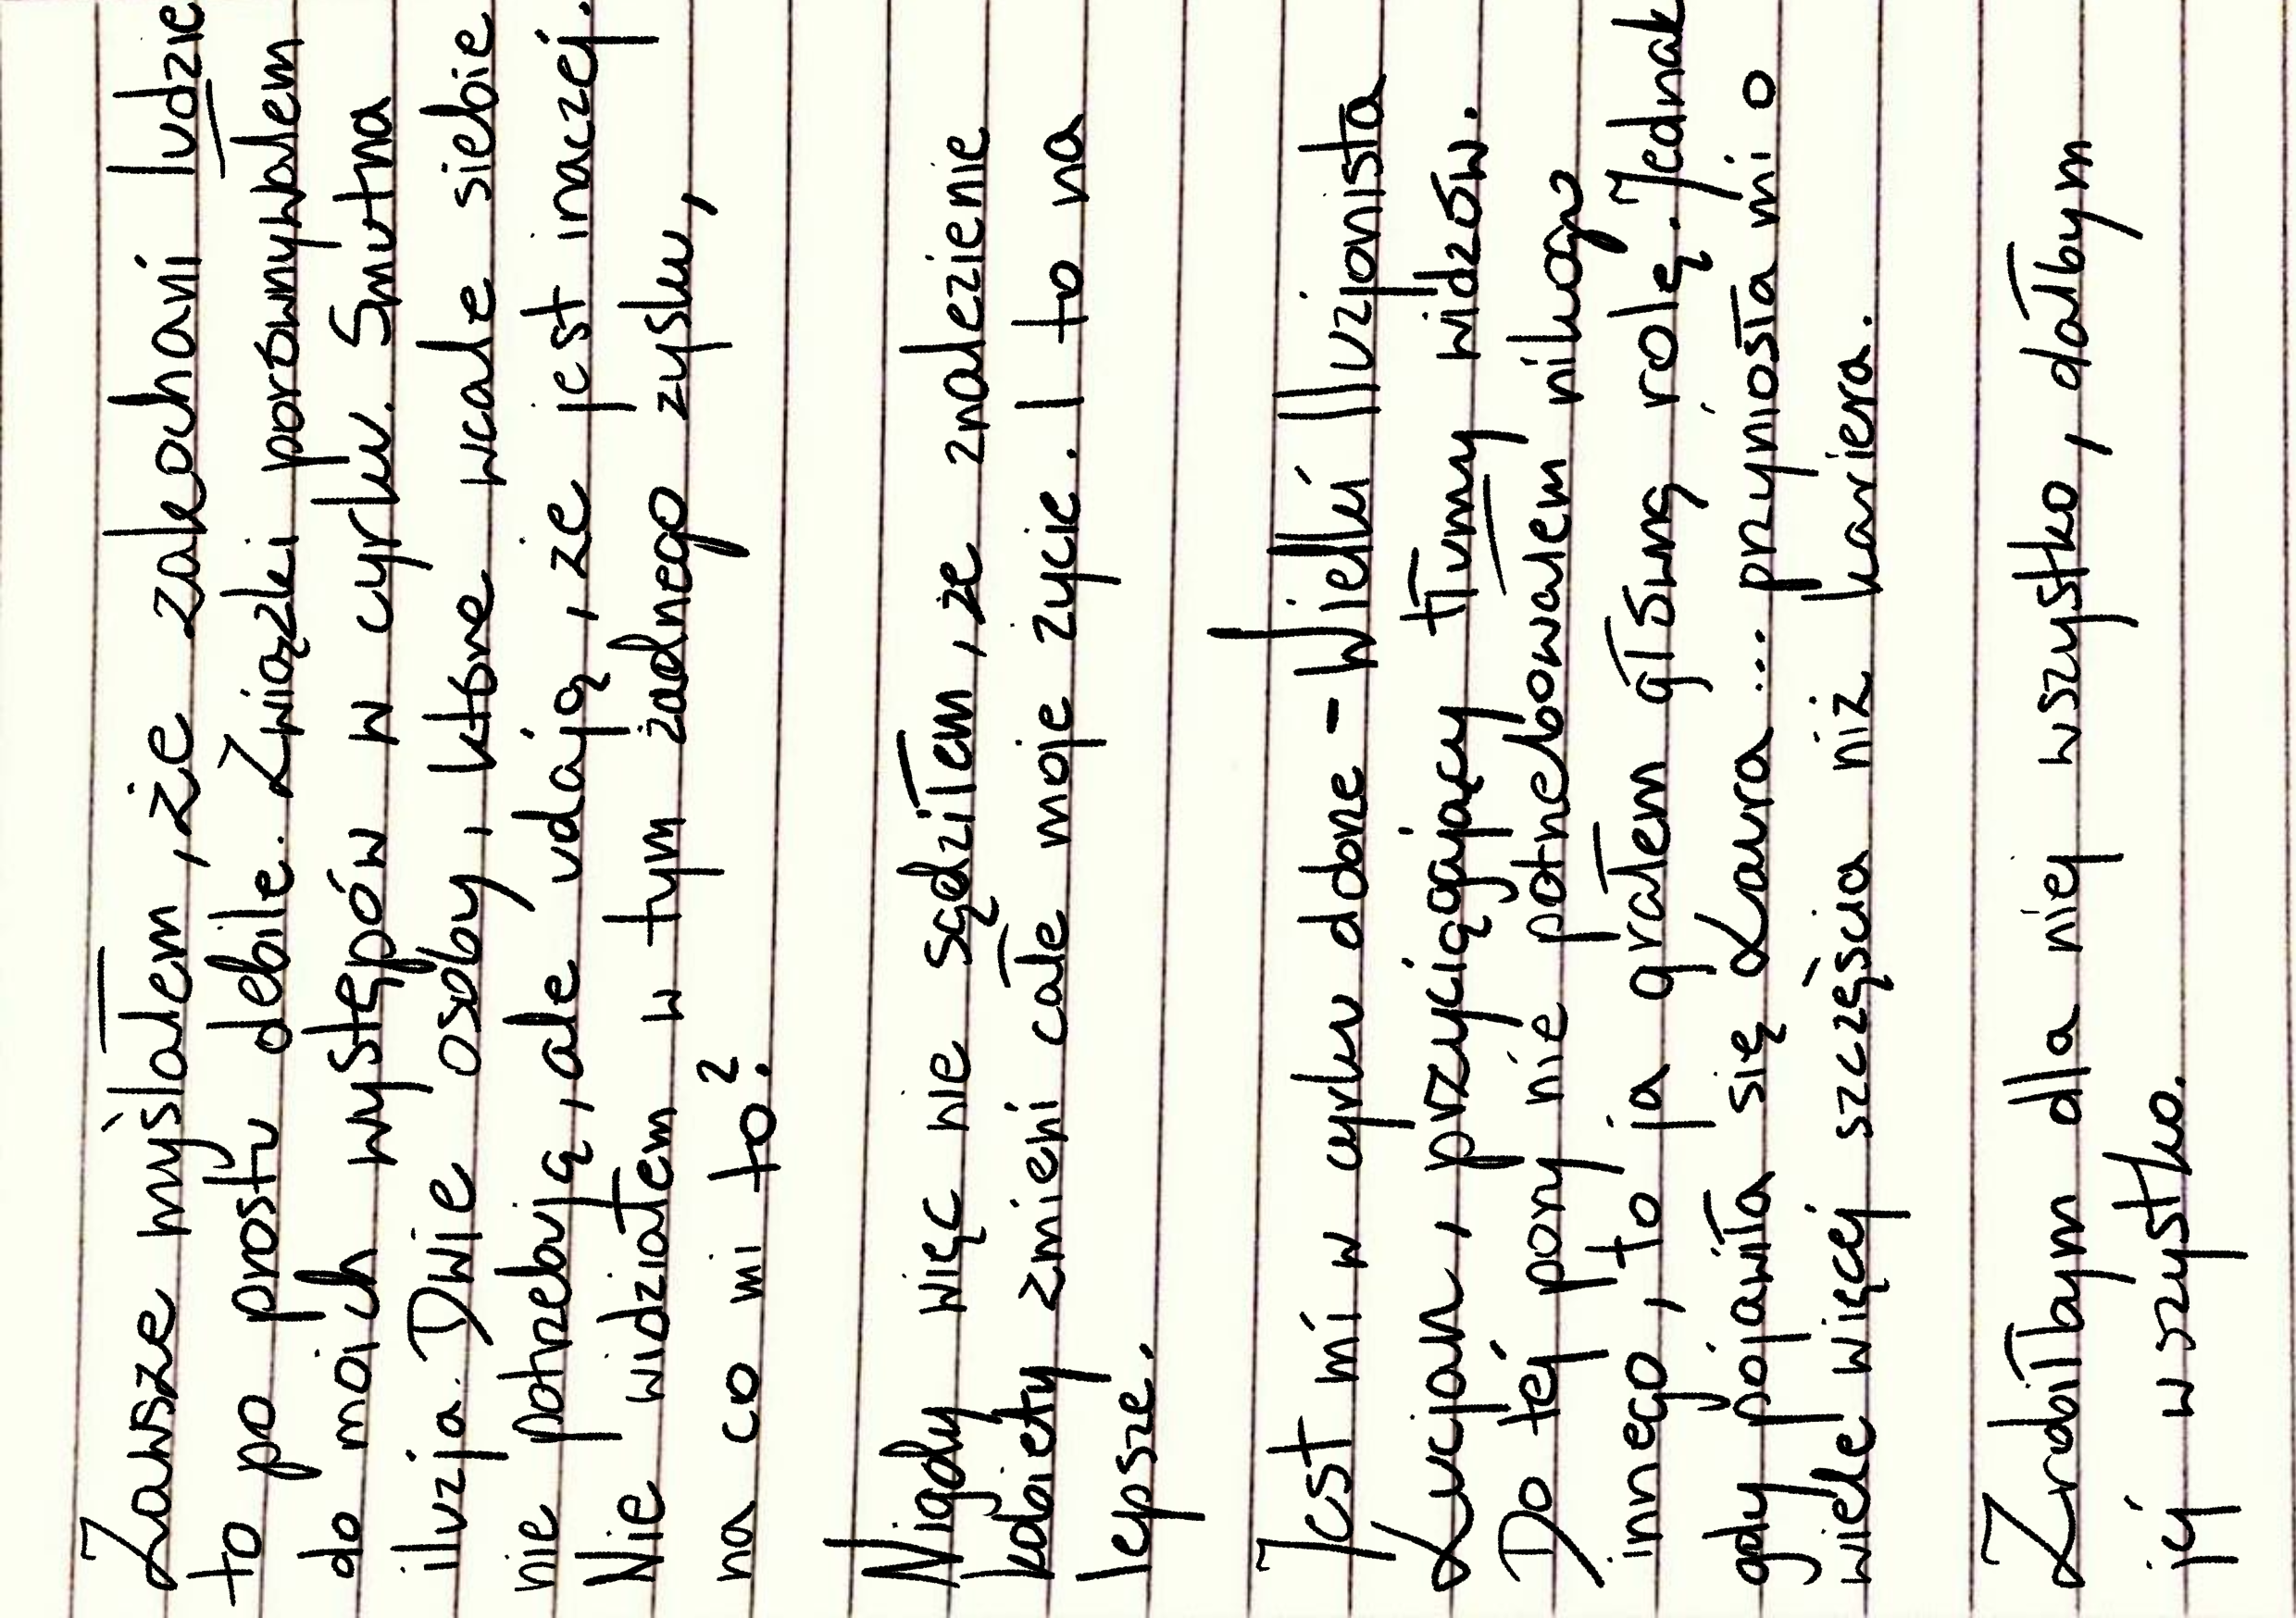 Zawsze myślałem, że zakochani ludzie
to po prostu debile. Związki porównywałem
do moich występów w cyrku. Smutna
iluzja. Dwie osoby, które wcale siebie
nie potrzebują, ale udają, że jest inaczej.
Nie widziałem w tym żadnego zysku,
na co mi to?
Nigdy więc nie sądziłem, że znalezienie
kobiety zmieni całe moje życie. I to na
lepsze.
Jest mi w cyrku dobrze - Wielki Iluzjonista
Lucjan, przyciągający tłumy widzów.
Do tej pory nie potrzebowałem nikogo
innego, to ja grałem główną rolę. Jednak
gdy pojawiła się Laura... przyniosła mi o
wiele więcej szczęścia niż kariera.
Zrobiłbym dla niej wszystko, dałbym
jej wszystko.